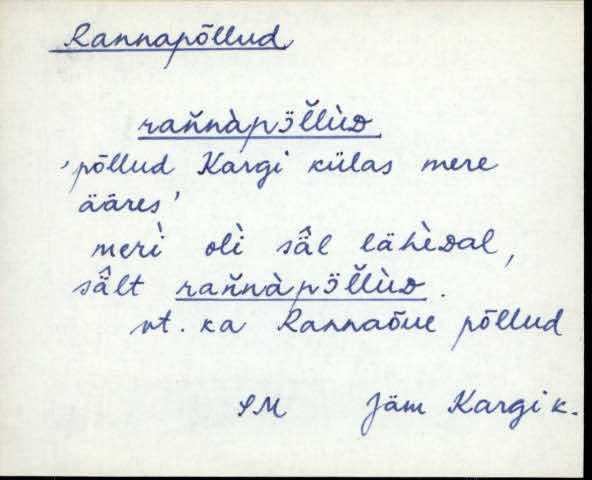 Rannapõllud
rañ̆nàpɔ̈̆l̆lùD
'põllud Kargi külas mere
ääres'
merì olì sä̂l lähèDal,
sä̂lt rañ̆nàpɔ̈̆l̆lùD.
vt. ka Rannaõue põllud
SM Jäm Kargi k.